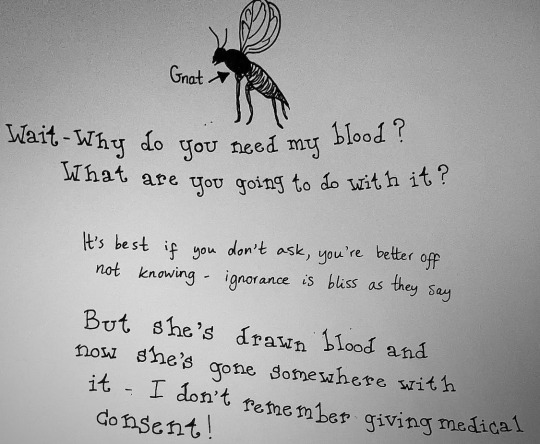 Gnat
Wait - Why do you need my blood?
What are you going to do with it?
It's best if you don't ask, you're better off
not knowing - ignorance is bliss as they say
But she's drawn blood and
now she's gone somewhere with
it - I don't remember giving medical
consent!